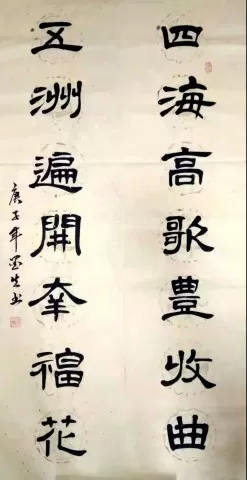 四海高歌豊收曲
五洲遍開幸福花
庚子年